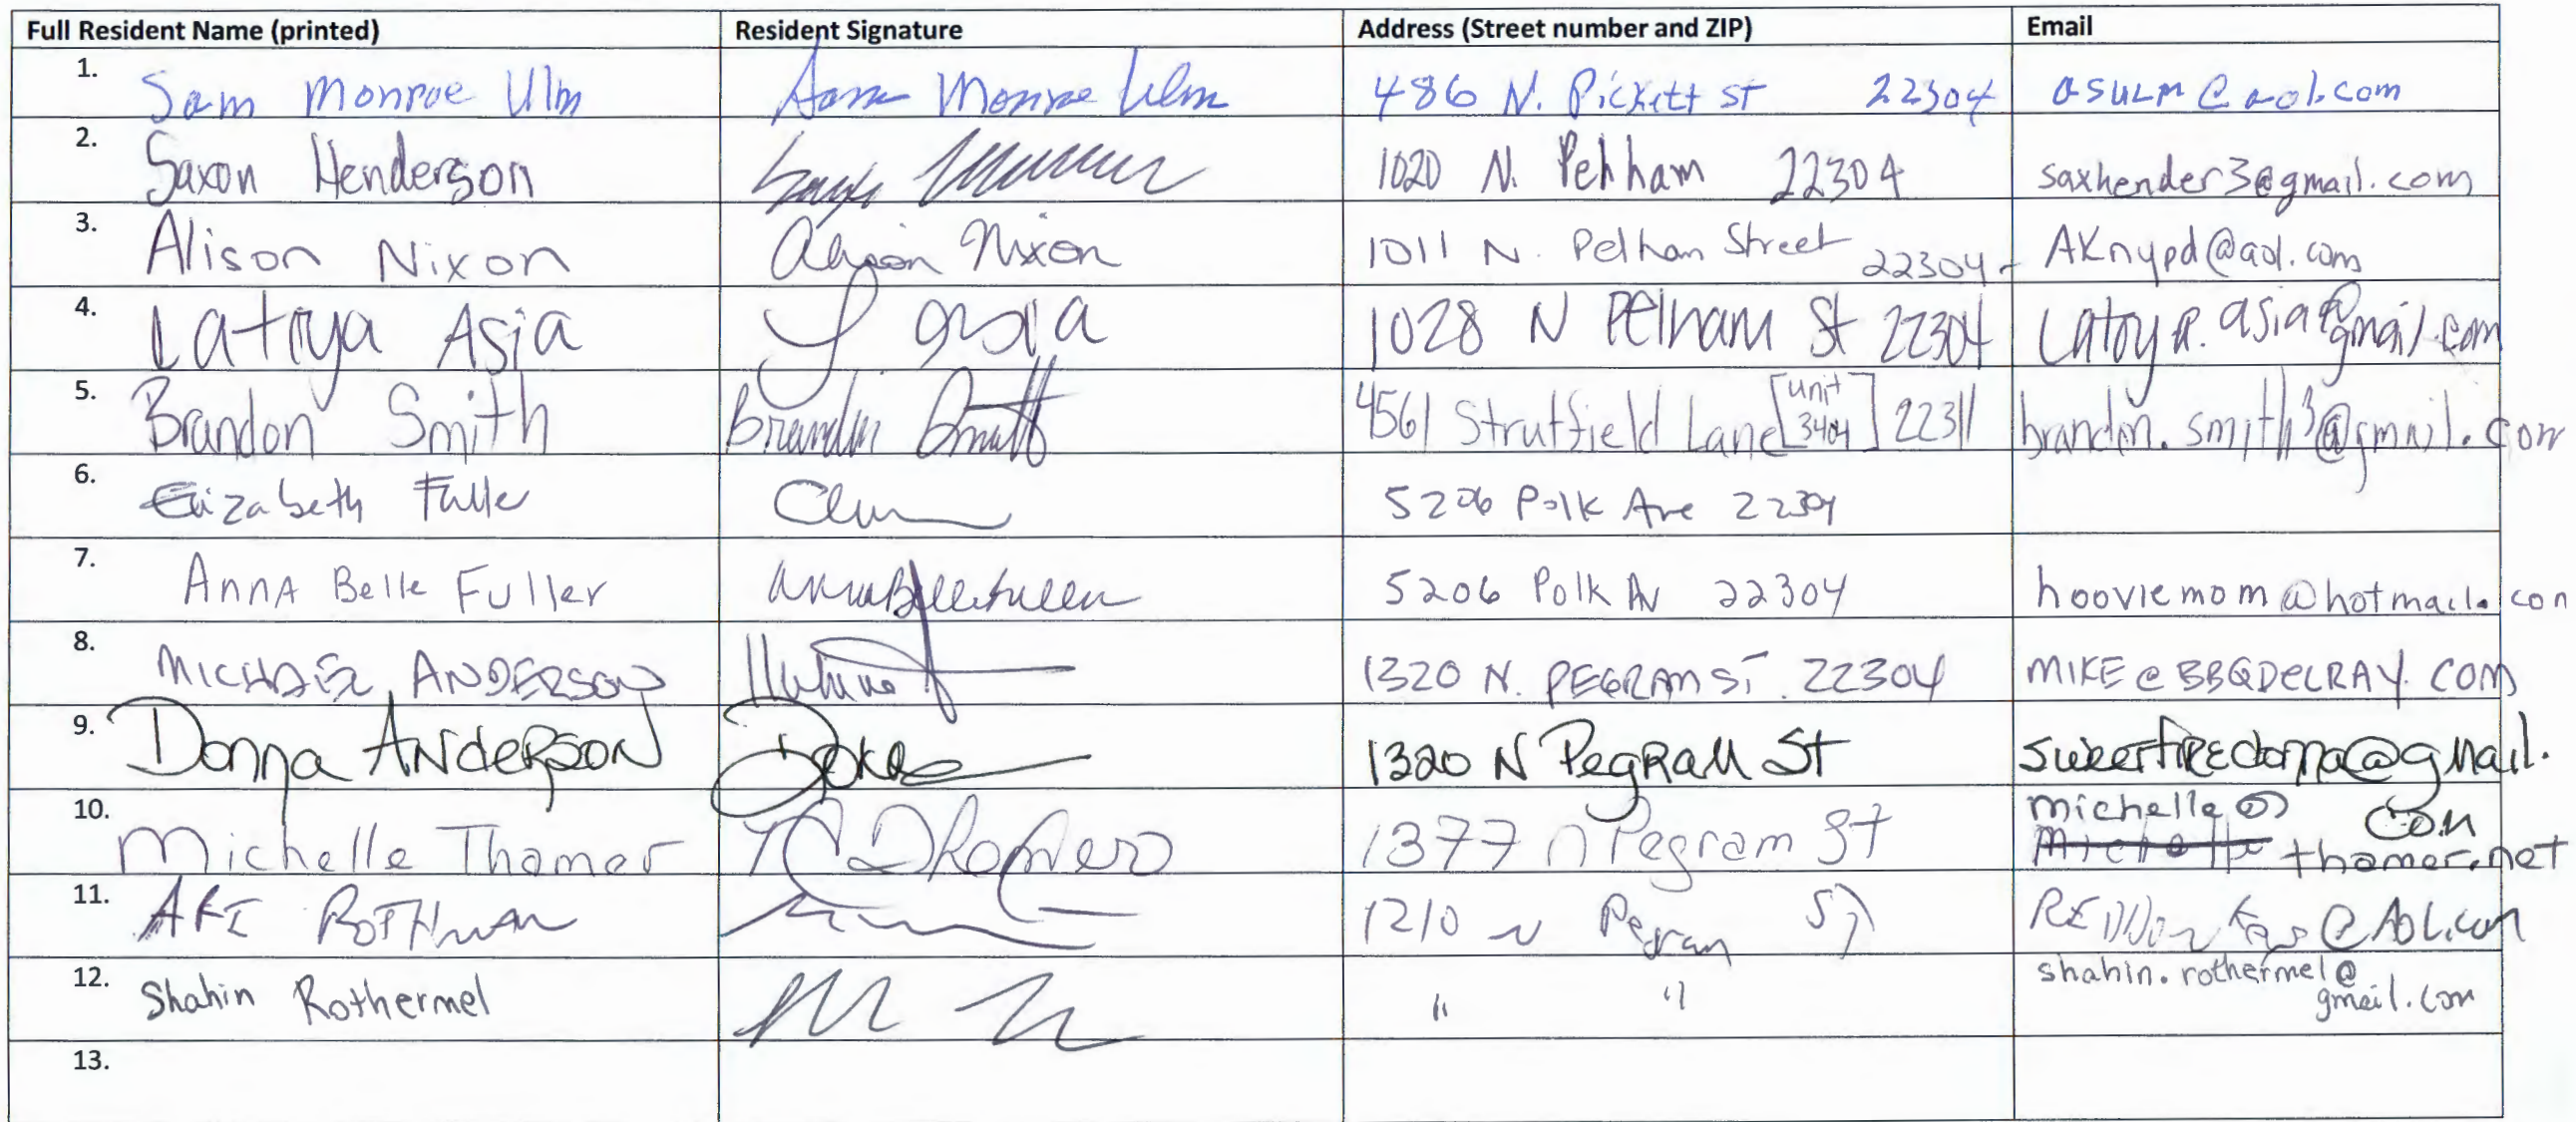 Full Resident Name (printed) Resident Signature Address (Street number and ZIP) Email
1. Sam Monroe Ulm Sam Monroe Ulm 486 N. Pickett St 22304 asulm@aol.com
2. Saxon Henderson 1020 N. Pelham 22304 saxhender3@gmail.com
3. Alison Nixon Alison Nixon 1011 N. Pelhan Street 22304 AKnypd@aol.com
4. Latoya Asia L Asia 1028 N Pelham St 22304 Latoya.asia@gmail.com
5. Brandon Smith Brandon Smith 4561 Strutfield Lane [unit 3404] 22311 brandon.smith3@gmail.com
6. Elizabeth Fuller 5206 Polk Ave 22304
7. AnnA Belle Fuller AnnaBelleFuller 5206 Polk Av 22304 hooviemom@hotmail.com
8. MICHAEL ANDERSON 1320 N. PEGRAM ST. 22304 MIKE@BBQDELRAY.COM
9. Donna ANdeRSON 1320 N PegRaM St sweetfiredonna@gmail.
com
10. Michelle Thomer 1377 n Pegram St michelle@
thomer.net
11. ARI ROTHman 1210 N Pegram ST @AOL.com
12. Shahin Rothermel " " shahin.rothermel@
gmail.com
13.